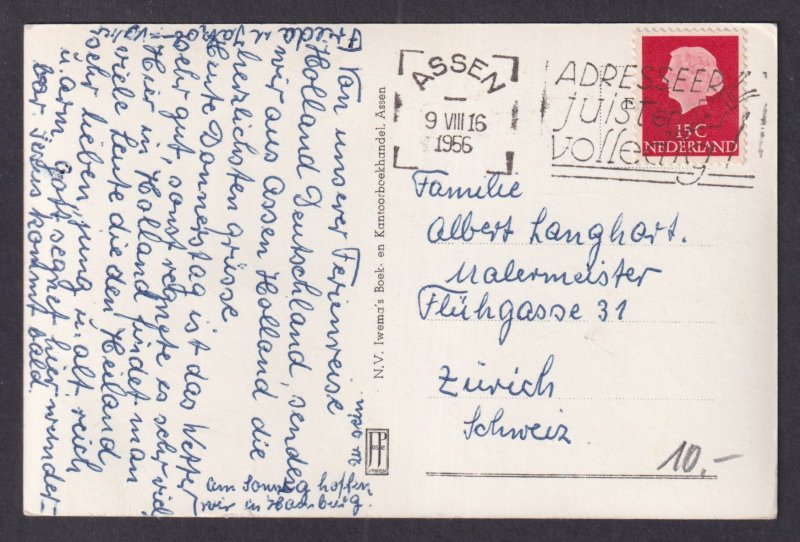 Von unserer Ferienreise
Holland Deutschland, senden
wir aus Assen Holland die
herzlichsten Grüsse.
Heute Donnerstag ist das Wetter
sehr gut, sonst regnete es sehr viel
Hier in Holland findet man
viele Leute die den Heiland
sehr lieben, jung u. alt reich
u. arm. Gott segnet hier wunder-
bar. Jesus kommt bald.
Frieda u.
am Sonntag hoffen
wir in Hamburg
N.V. Iwema's Boek- en Kantoorboekhandel, Assen
JP
ASSEN
9 VIII 16
1956
ADRESSEER
juist en
volledig!
15 C
NEDERLAND
Familie
Albert Langhart.
Malermeister
Flühgasse 31
Zürich
Schweiz
10.-